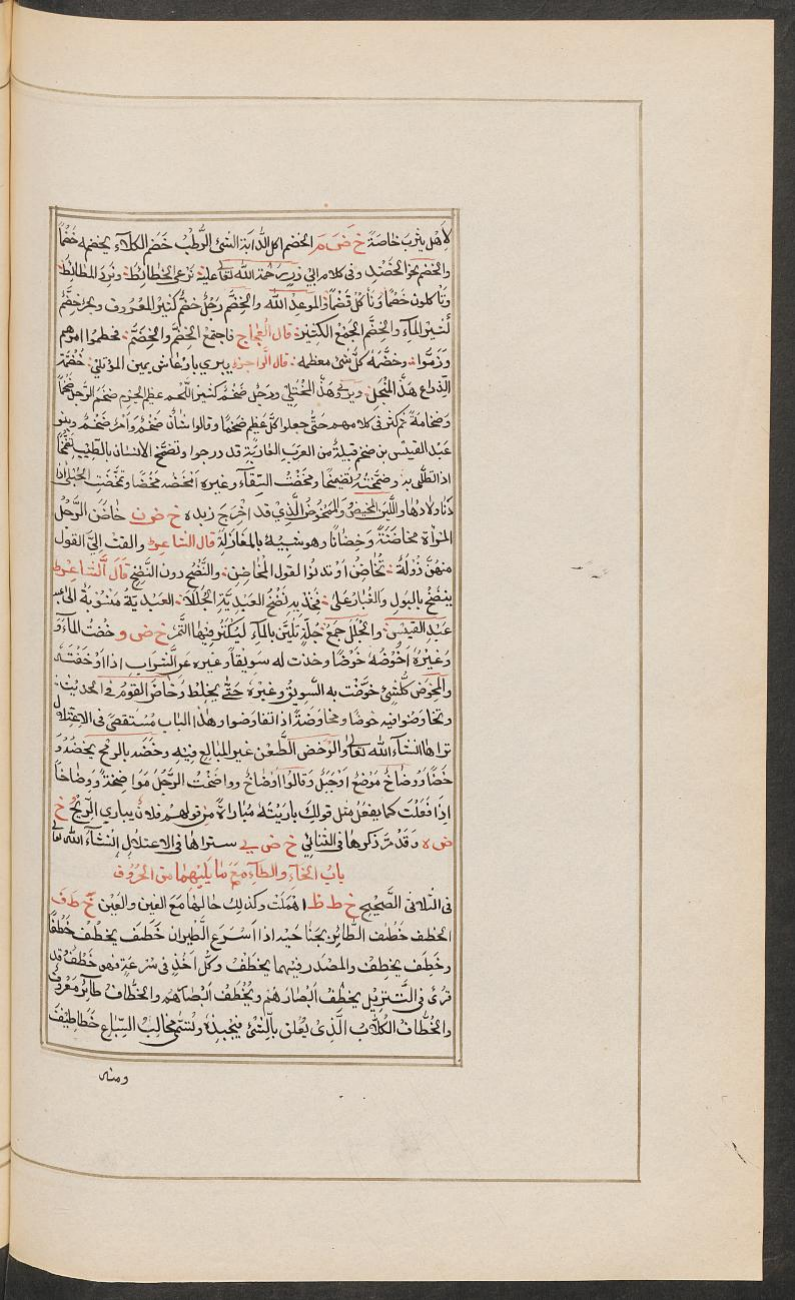 لأهل يثرب خاصة خ ض م الخضم اكل الدابة الشئ الرطب خضم الكلاء يخضمه خضما
والخضم بخر الخضد وفى كلام ابى ذر رحمة الله تعا عليه ترعى الخطائط ونرد المطائط
وتأكلون خضما ونأكل قضما والموعد الله والخضم رجل خضم كثير المعروف وبحر خضم
كثير المآء والخضم الجمع الكثير قال العجاج فاجتمع الخضم والخضم فخطموا امرهم
وزموا وخضمه كل شئ معظمه قال الراجز يبرى بارعاش يمين المؤتلي خضمة
الذراع هذ المختلي ويروى هذ المختلي ورجل ضخم كثير اللحم عظيم الجرم ضخم الرجل ضخما
وضخامة ثم كثر فى كلامهم حتى جعلوا كل عظيم ضخما وقالوا شأن ضخم وامر ضخم وبنو
عبد القيس بن ضخم قبيلة من العرب العاربة قد درجوا وتضمخ الانسان بالطيب تضمخا
اذا تطلى به وضمخته تضميخا ومخضت السقآء وغيره امخضه مخضا وتمخضت الحبلى اذا
دنا ولادها واللبن المخيض والممخوض الذي قد اخرج زبده خ ض ن خاضن الرجل
المرأة مخاضنة وخضانا وهو شبيه بالمغازلة قال الشاعر والقت الي القول
منهن زولة تخاضن او ترنوا لقول المخاضن والنضخ دون النضح قال الشاعر
ينضخ بالبول والغبار على فخذيه نضخ العبدية الجللا العبدية منسوبة الى
عبد القيس والجلل جمع جلة يبلين بالمآء ليكثر فيها التمر خ ض و خضت المآء
وغيره اخوضه خوضا وخضت له سويقا وغيره من الشراب اذا اوخفته
والمخوض كل شئ خوضت به السويق وغيره حتى يختلط وخاض القوم فى الحديث
وتخاوضوا فيه خوضا ومخاوضة اذا تفاوضوا وهذا الباب مستقصى فى الاعتلال
تراها انشآء الله تعا والوخض الطعن غير المبالغ فيه وخضه بالرمح يخضه و
خضا ووضاخ موضع او جبل وقالوا اوضاخ وواضخت الرجل مواضخة ووضاخا
اذا فعلت كما يفعل مثل قولك باريته مباراة من قولهم فلان يبارى الريح خ
ض ه وقد مر ذكرها فى الثنائي خ ض ي ستراها فى الاعتلال انشآء الله تعا
باب الخآء والطآء مع ما يليهما من الحروف
فى الثلاثى الصحيح خ ط ظ اهملت وكذلك حالهما مع العين والغين خ ط ف
الخطف خطف الطائر بجناحيه اذا اسرع الطيران خطف يخطف خطفا
وخطف يخطف والمصدر فيهما يخطف وكل اخذ فى سرعة فهو خطف وقد
قرئ فى التنزيل يخطف ابصارهم ويخطف ابصارهم والخطاف طائر معروف
والخطاف الكلاب الذى يعلق بالشئ فيجبذه وتسمى مخالب السباع خطاطيف
ومنه